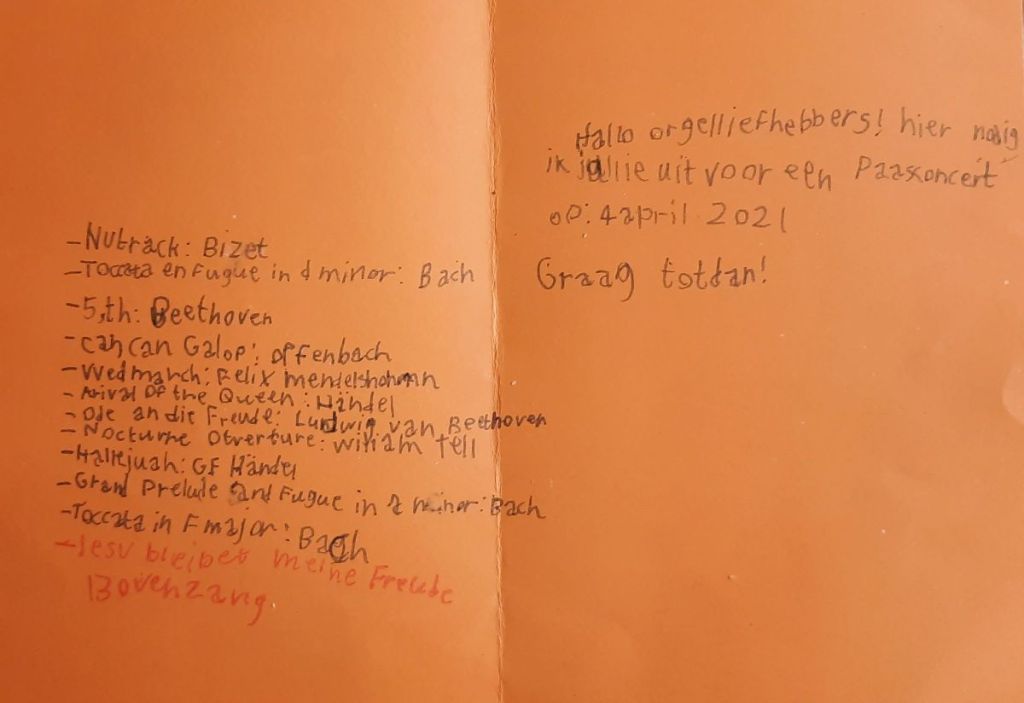 -Nutrack: Bizet
-Toccata en Fugue in d minor: Bach
-5,th: Beethoven
-can can Galop: offenbach
-Wedmarch: Felix mendelshohmn
-Arival Of the Queen: Händel
-Ode an die Freude: Ludwig van Beethoven
-Nocturne Overture: william tell
-Hallejuah: GF Händel
-Grand Prelude and Fugue in d minor: Bach
-Toccata in F major: Bach
-Jesu bleibet meine Freude
Bovenzang
Hallo orgelliefhebbers! hier nodig
ik jullie uit voor een Paasconcert
op: 4 april 2021
Graag totdan!